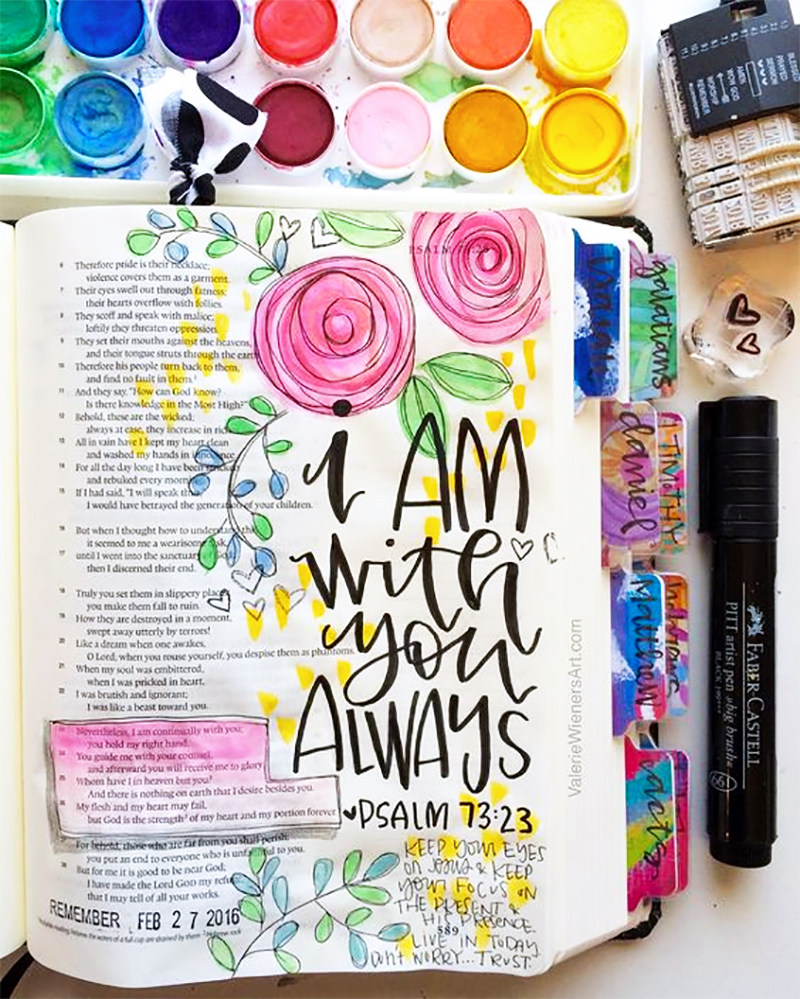 PSALM 73:23
6 Therefore pride is their necklace;
violence covers them as a garment.
7 Their eyes swell out through fatness;
their hearts overflow with follies.
8 They scoff and speak with malice;
loftily they threaten oppression.
9 They set their mouths against the heavens,
and their tongue struts through the earth.
10 Therefore his people turn back to them,
and find no fault in them.
11 And they say, "How can God know?
Is there knowledge in the Most High?"
12 Behold, these are the wicked;
always at ease, they increase in
13 All in vain have I kept my heart clean
and washed my hands in innocence.
14 For all the day long I have been stricken
and rebuked every
15 If I had said, "I will speak
I would have betrayed the generation of your children.
16 But when I thought how to understand
it seemed to me a wearisome task,
17 until I went into the sanctuary of God;
then I discerned their end.
18 Truly you set them in slippery places
you make them fall to ruin.
19 How they are destroyed in a moment,
swept away utterly by terrors!
20 Like a dream when one awakes,
O Lord, when you rouse yourself, you despise them as phantoms.
21 When my soul was embittered,
when I was pricked in heart,
22 I was brutish and ignorant;
I was like a beast toward you.
23 Nevertheless, I am continually with you;
you hold my right hand.
24 You guide me with your counsel,
and afterward you will receive me to glory
25 Whom have I in heaven but you?
And there is nothing on earth that I desire besides you.
26 My flesh and my heart may fail,
but God is the strength of my heart and my portion forever.
For behold, those who are far from you shall perish;
you put an end to everyone who is unfaithful to you.
28 But for me it is good to be near God;
I have made the Lord GOD my
that I may tell of all your works.
REMEMBER FEB 27 2016
I AM
with
you
ALWAYS
PSALM 73:23
KEEP YOUR EYES
ON JESUS & KEEP
YOUR FOCUS ON
THE PRESENT &
HIS PRESENCE.
589
LIVE IN TODAY.
DONT WORRY...TRUST.
ValerieWienersArt.com
Isaiah
galatians
daniel
1 TIMOTHY
Matthew
acts
FABER-CASTELL
PITT artist pen big brush
BLACK